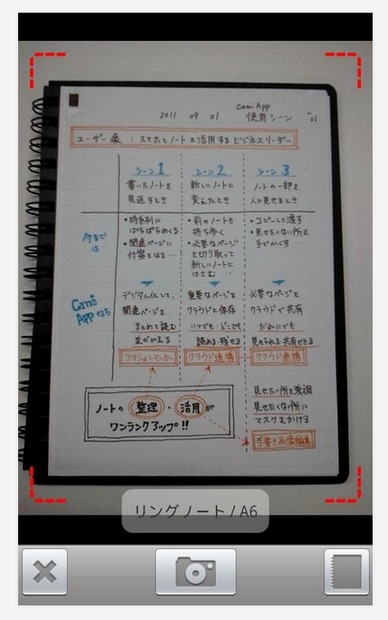 2011 09 01
CamiApp
使用シーン
01
ユーザー像：スマホとノートを活用するビジネスリーダー
シーン1
書いたノートを
見返すとき
シーン2
新しいノートに
変えたとき
シーン3
ノートの一部を
人に見せるとき
今までは…
・時系列に
ぱらぱらめくる
・関連ページに
付箋をはる…
・前のノートも
持ち歩く
・必要なページ
を切り取って
新しいノートに
はさむ…
・コピーして渡す
・見せたくない所を
手でかくす…
Cami
Appなら
デジタル化して、
関連ページを
まとめて読む
並べかえる
アクションマーカー
重要なページを
クラウドに保存
いつでも・どこでも
読める・残せる
クラウド連携
必要なページを
クラウドで共有
だれにでも
見せられる・共有できる
クラウド連携
見せたい所を強調
見せたくない所に
マスクをかける
手書き画像編集
ノートの 整理・活用が
ワンランクアップ!!
リングノート / A6